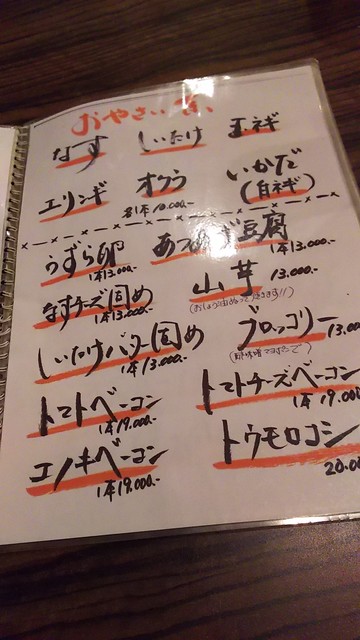 おやさい
なす しいたけ 玉ネギ
エリンギ オクラ いかだ
(白ネギ)
各1本 10.000.-
うずら卵 あつあげ豆腐
1本13.000.- 1本13.000.-
なすチーズ固め 山芋 13.000.-
1本13.000.-
しいたけバター固め ブロッコリー 13.00
1本13.000.-
トマトベーコン トマトチーズベーコン
1本19.000.- 1本19.000
エノキベーコン トウモロコシ
1本19.000.- 20.00